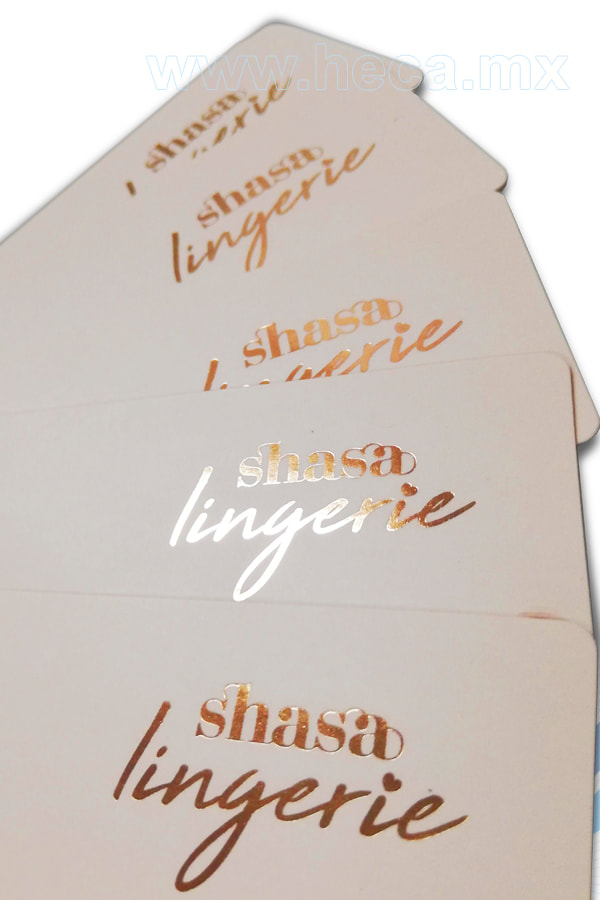 www.heca.mx
shasa
shasa
lingerie
shasa
lingerie
shasa
lingerie
shasa
lingerie